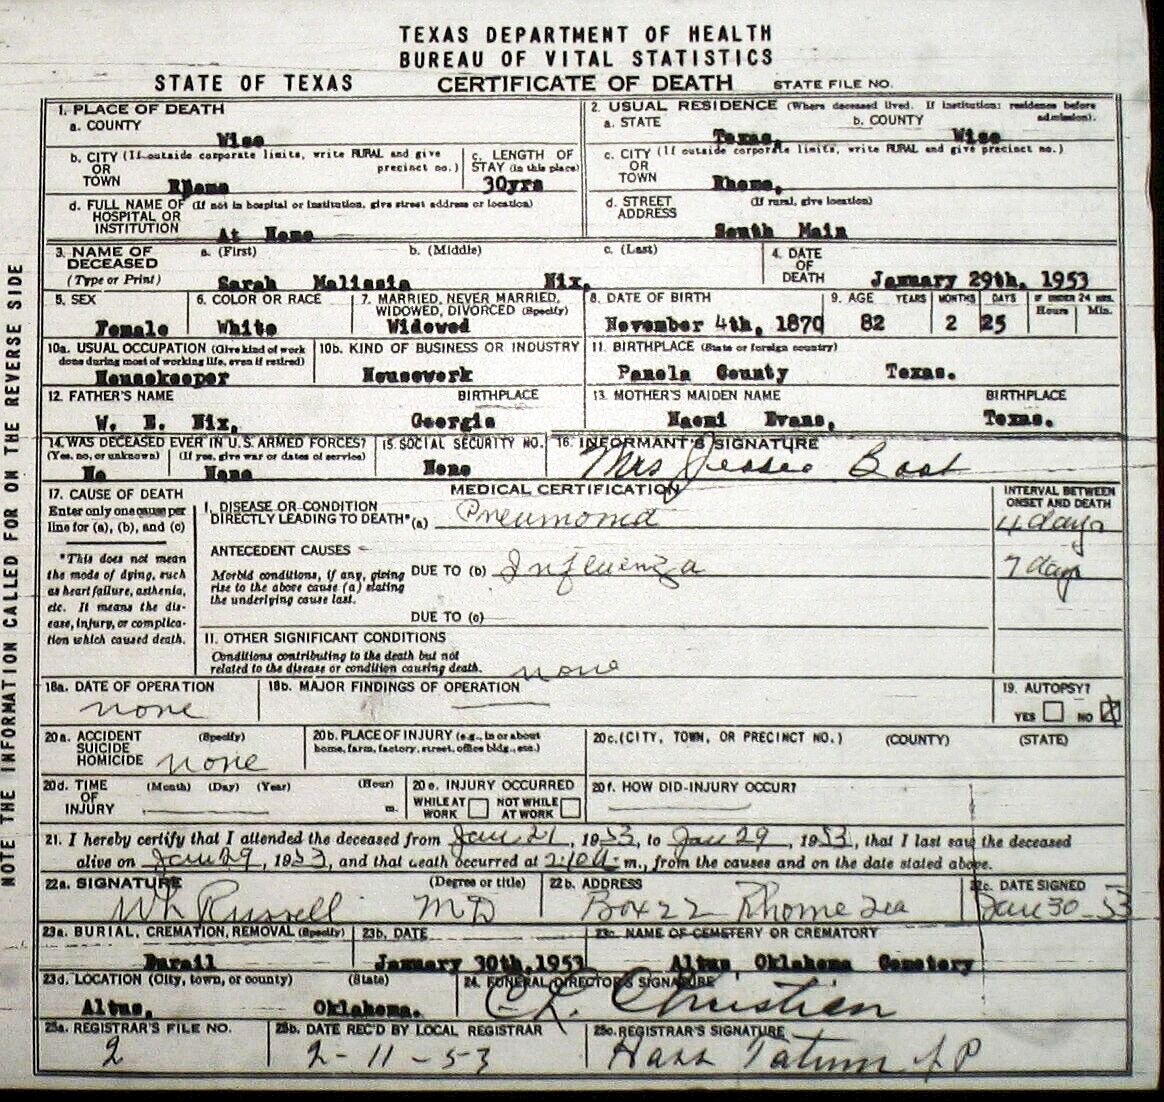 TEXAS DEPARTMENT OF HEALTH
BUREAU OF VITAL STATISTICS
STATE OF TEXAS CERTIFICATE OF DEATH STATE FILE NO.
NOTE THE INFORMATION CALLED FOR ON THE REVERSE SIDE
1. PLACE OF DEATH
a. COUNTY
Wise
2. USUAL RESIDENCE (Where deceased lived. If institution: residence before admission).
a. STATE b. COUNTY
Texas, Wise
b. CITY (If outside corporate limits, write RURAL and give precinct no.)
OR
TOWN
Rhome
c. LENGTH OF
STAY (in this place)
30yrs
c. CITY (If outside corporate limits, write RURAL and give precinct no.)
OR
TOWN
Rhome,
d. FULL NAME OF (If not in hospital or institution, give street address or location)
HOSPITAL OR
INSTITUTION
At Home
d. STREET (If rural, give location)
ADDRESS
South Main
3. NAME OF DECEASED
(Type or Print)
a. (First) b. (Middle) c. (Last)
Sarah Malissia Nix,
4. DATE
OF
DEATH
January 29th, 1953
5. SEX
Female
6. COLOR OR RACE
White
7. MARRIED, NEVER MARRIED,
WIDOWED, DIVORCED (Specify)
Widowed
8. DATE OF BIRTH
November 4th, 1870
9. AGE YEARS MONTHS DAYS IF UNDER 24 HRS.
Hours Min.
82 2 25
10a. USUAL OCCUPATION (Give kind of work
done during most of working life, even if retired)
Housekeeper
10b. KIND OF BUSINESS OR INDUSTRY
Housework
11. BIRTHPLACE (State or foreign country)
Panola County Texas.
12. FATHER'S NAME BIRTHPLACE
W. E. Nix, Georgia
13. MOTHER'S MAIDEN NAME BIRTHPLACE
Naomi Evans, Texas.
14. WAS DECEASED EVER IN U.S. ARMED FORCES?
(Yes, no, or unknown) (If yes, give war or dates of service)
No None
15. SOCIAL SECURITY NO.
None
16. INFORMANT'S SIGNATURE
Mrs Jessee
MEDICAL CERTIFICATION
INTERVAL BETWEEN
ONSET AND DEATH
17. CAUSE OF DEATH
Enter only one cause per
line for (a), (b), and (c)
*This does not mean
the mode of dying, such
as heart failure, asthenia,
etc. It means the dis-
ease, injury, or complica-
tion which caused death.
I. DISEASE OR CONDITION
DIRECTLY LEADING TO DEATH* (a) Pneumonia 4 days
ANTECEDENT CAUSES
Morbid conditions, if any, giving
rise to the above cause (a) stating
the underlying cause last.
DUE TO (b) Influenza 7 days
DUE TO (c)
II. OTHER SIGNIFICANT CONDITIONS
Conditions contributing to the death but not
related to the disease or condition causing death. none
18a. DATE OF OPERATION
none
18b. MAJOR FINDINGS OF OPERATION
19. AUTOPSY?
YES NO
20a. ACCIDENT (Specify)
SUICIDE
HOMICIDE none
20b. PLACE OF INJURY (e.g., in or about
home, farm, factory, street, office bldg., etc.)
20c. (CITY, TOWN, OR PRECINCT NO.) (COUNTY) (STATE)
20d. TIME (Month) (Day) (Year) (Hour)
OF
INJURY m.
20e. INJURY OCCURRED
WHILE AT WORK NOT WHILE AT WORK
20f. HOW DID INJURY OCCUR?
21. I hereby certify that I attended the deceased from Jan 21, 1953, to Jan 29, 1953, that I last saw the deceased
alive on Jan 29, 1953, and that death occurred at 2:10 A. m., from the causes and on the date stated above.
22a. SIGNATURE (Degree or title)
Russell MD
22b. ADDRESS
Box 22 Rhome
22c. DATE SIGNED
Jan 30 - 53
23a. BURIAL, CREMATION, REMOVAL (Specify)
Burail
23b. DATE
January 30th,1953
23c. NAME OF CEMETERY OR CREMATORY
Altus, Oklahoma Cemetery
23d. LOCATION (City, town, or county) (State)
Altus, Oklahoma.
24. FUNERAL DIRECTOR'S SIGNATURE
C. L. Christian
25a. REGISTRAR'S FILE NO.
2
25b. DATE REC'D BY LOCAL REGISTRAR
2-11-53
25c. REGISTRAR'S SIGNATURE
Tatum J P